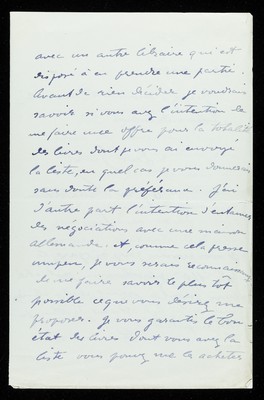 avec un autre libraire qui est
disposé à en prendre une partie.
Avant de rien décider je voudrais
savoir si vous avez l'intention de
me faire une offre pour la totalité
des livres dont je vous ai envoyé
la liste, en quel cas je vous donnerais
sans doute la préférence. J'ai
d'autre part l'intention d'entamer
des négociations avec une maison
allemande. Et, comme cela presse
un peu, je vous serais reconnaissant
de me faire savoir le plus tôt
possible ce que vous désirez me
proposer. Je vous garantis le bon
état des livres dont vous avez la
liste vous pouvez me les acheter